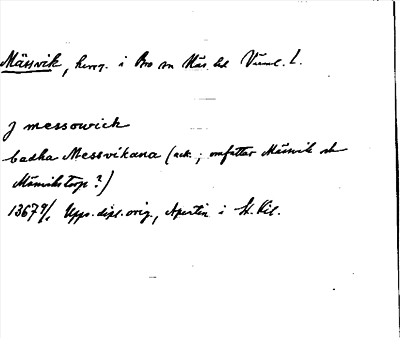 Mässvik, herrg. i Bro sn Näs hd Värml. l.
j messowich
badha Messvikana (ack.; omfattar Mässvik och
Mässvikstorp?)
1367 9/1 Upps. dipl. orig., Apertin i St. Kil.